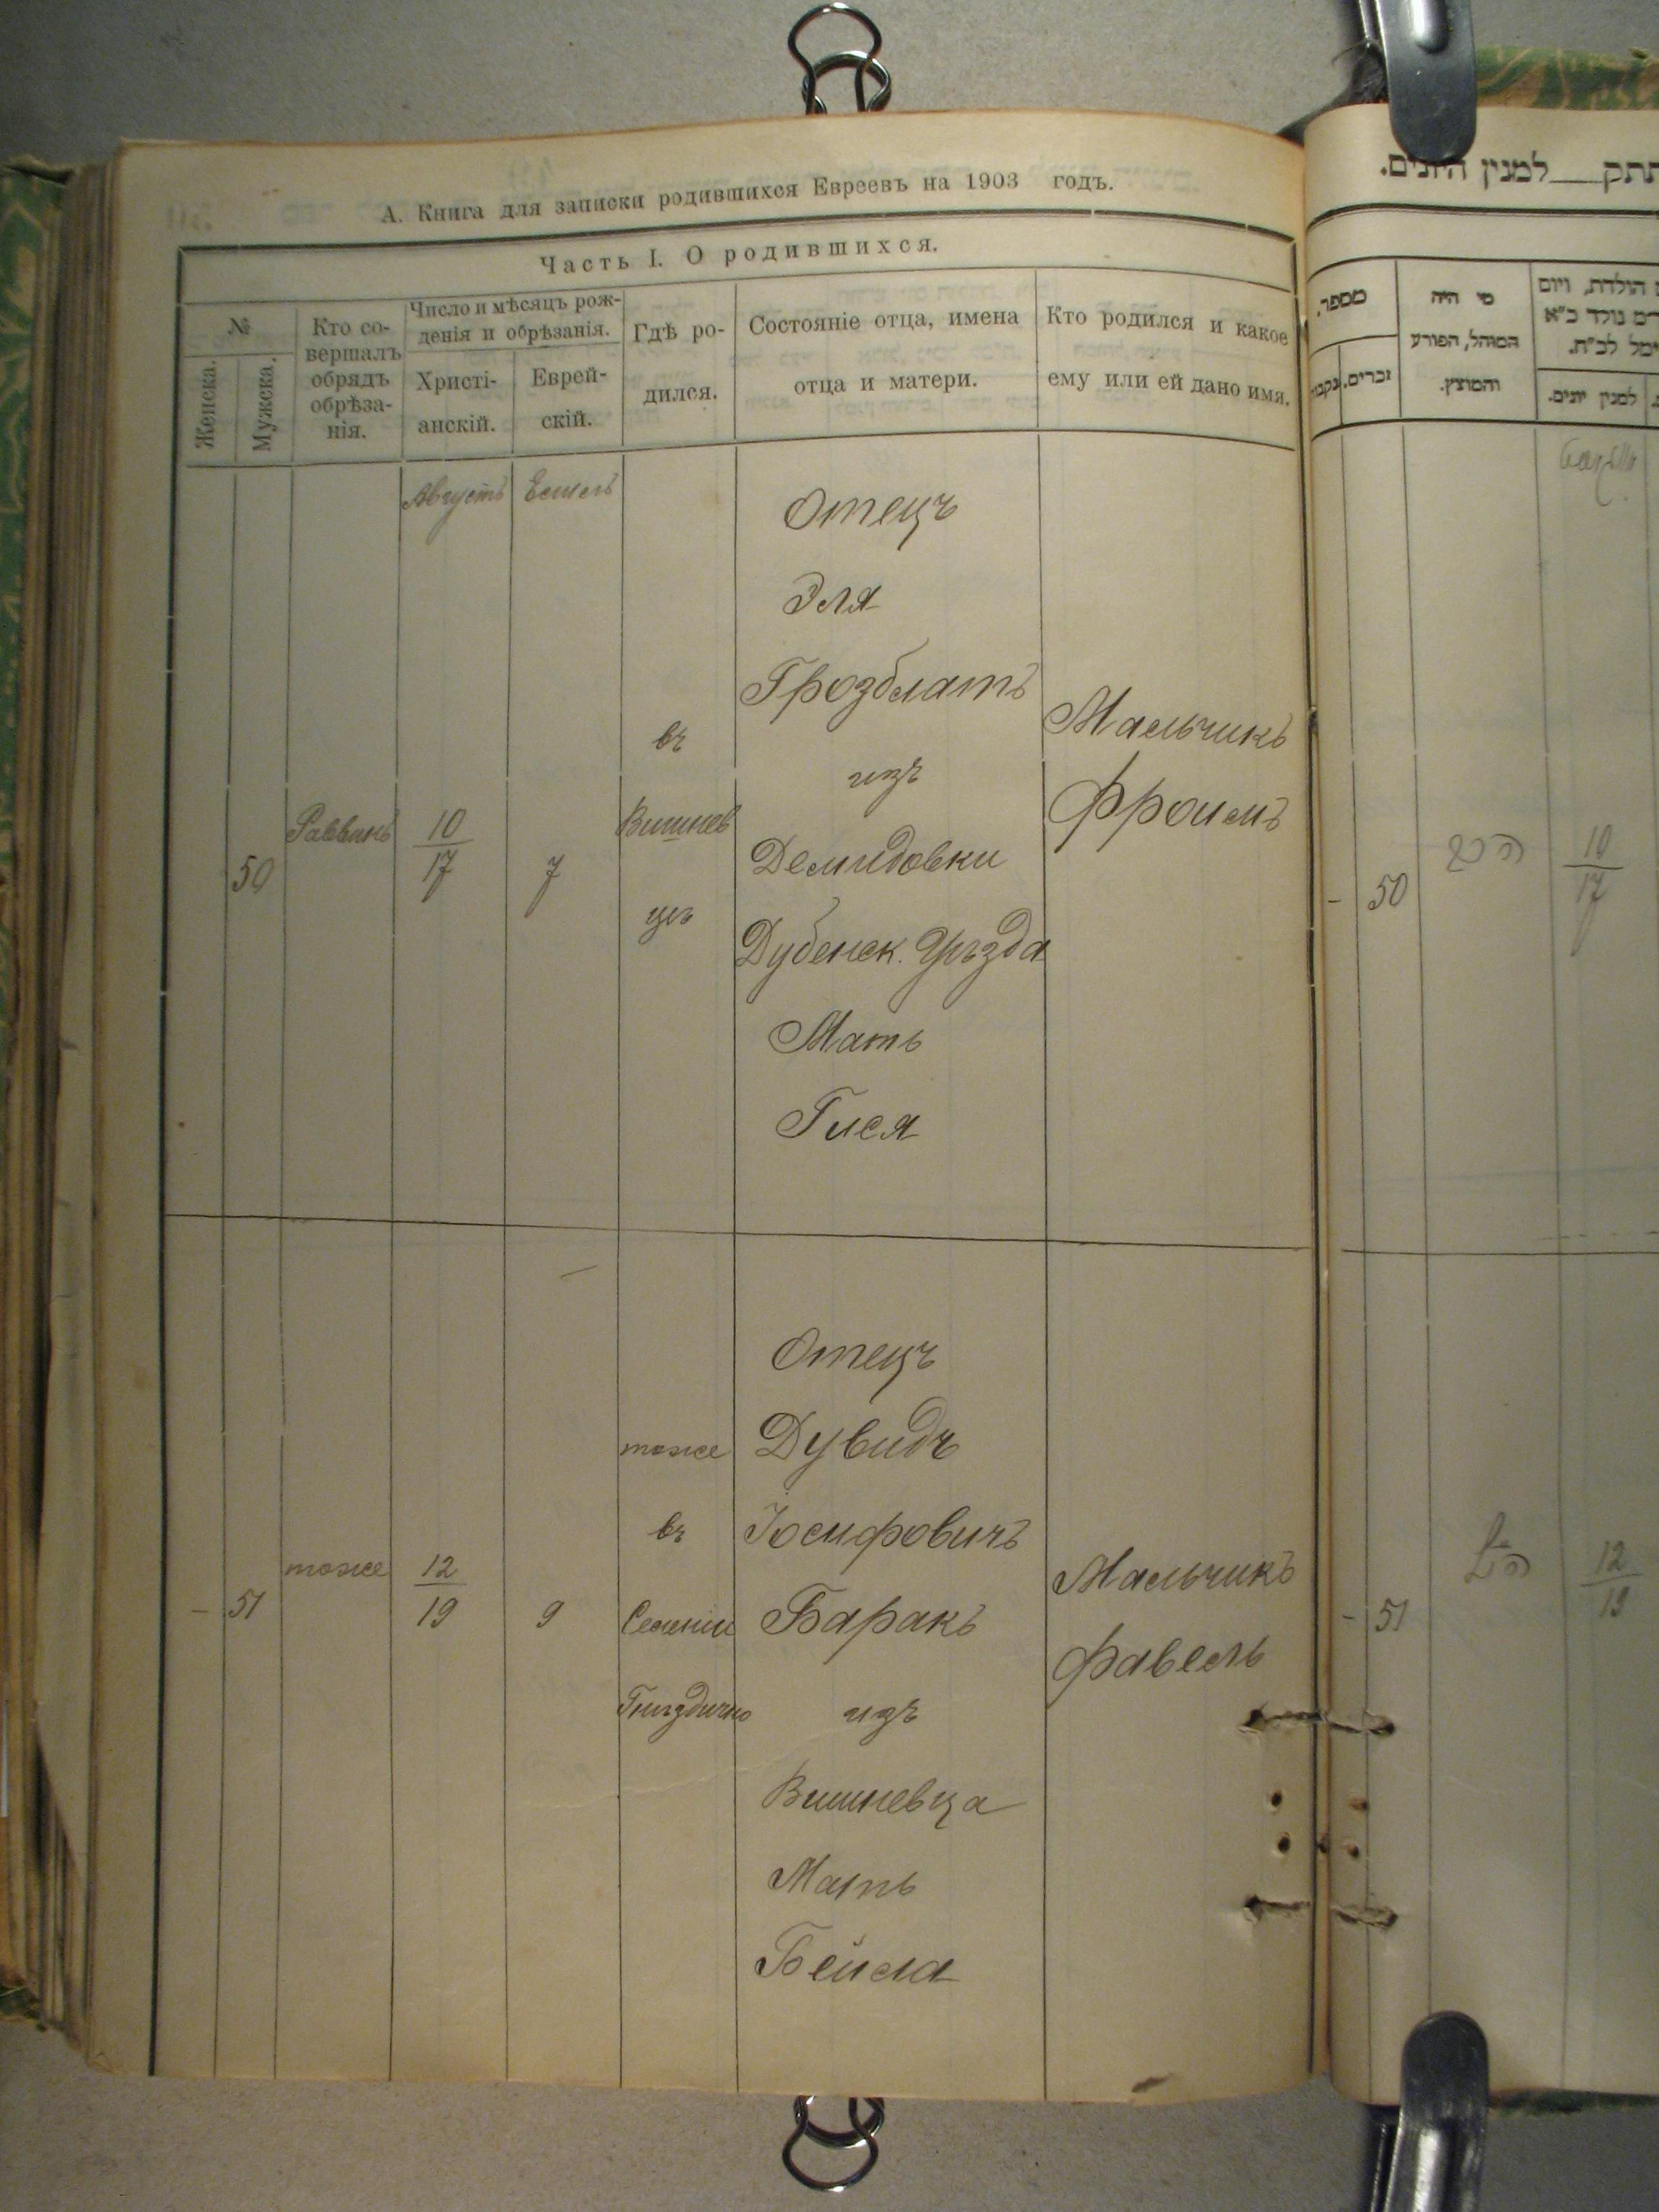 А. Книга для записки родившихся Евреевъ на 1903 годъ.
Часть I. О родившихся.
№
Женска.
Мужска.
Кто со-
вершалъ
обрядъ
обрѣза-
нія.
Число и мѣсяцъ рож-
денія и обрѣзанія.
Христі-
анскій.
Еврей-
скій.
Гдѣ ро-
дился.
Состояніе отца, имена
отца и матери.
Кто родился и какое
ему или ей дано имя.
Августъ
50
Раввинъ
10
17
7
въ
Вишнев
цѣ
Отецъ
Эля
Грозблатъ
изъ
Демидовки
Дубенск. Уѣзда
Мать
Гися
Мальчикъ
Фроимъ
- 51
тоже
12
19
9
тоже
въ
Селеніи
Гнѣздично
Отецъ
Дувидъ
Іосифовичъ
Баракъ
изъ
Вишневца
Мать
Бейла
Мальчикъ
Фавель
למנין היונים.
מספר,
זכרים.
מי היה
המוהל, הפורע
והמוצץ.
הולדת, ויום
למנין יונים.
- 50
10
17
- 51
12
19